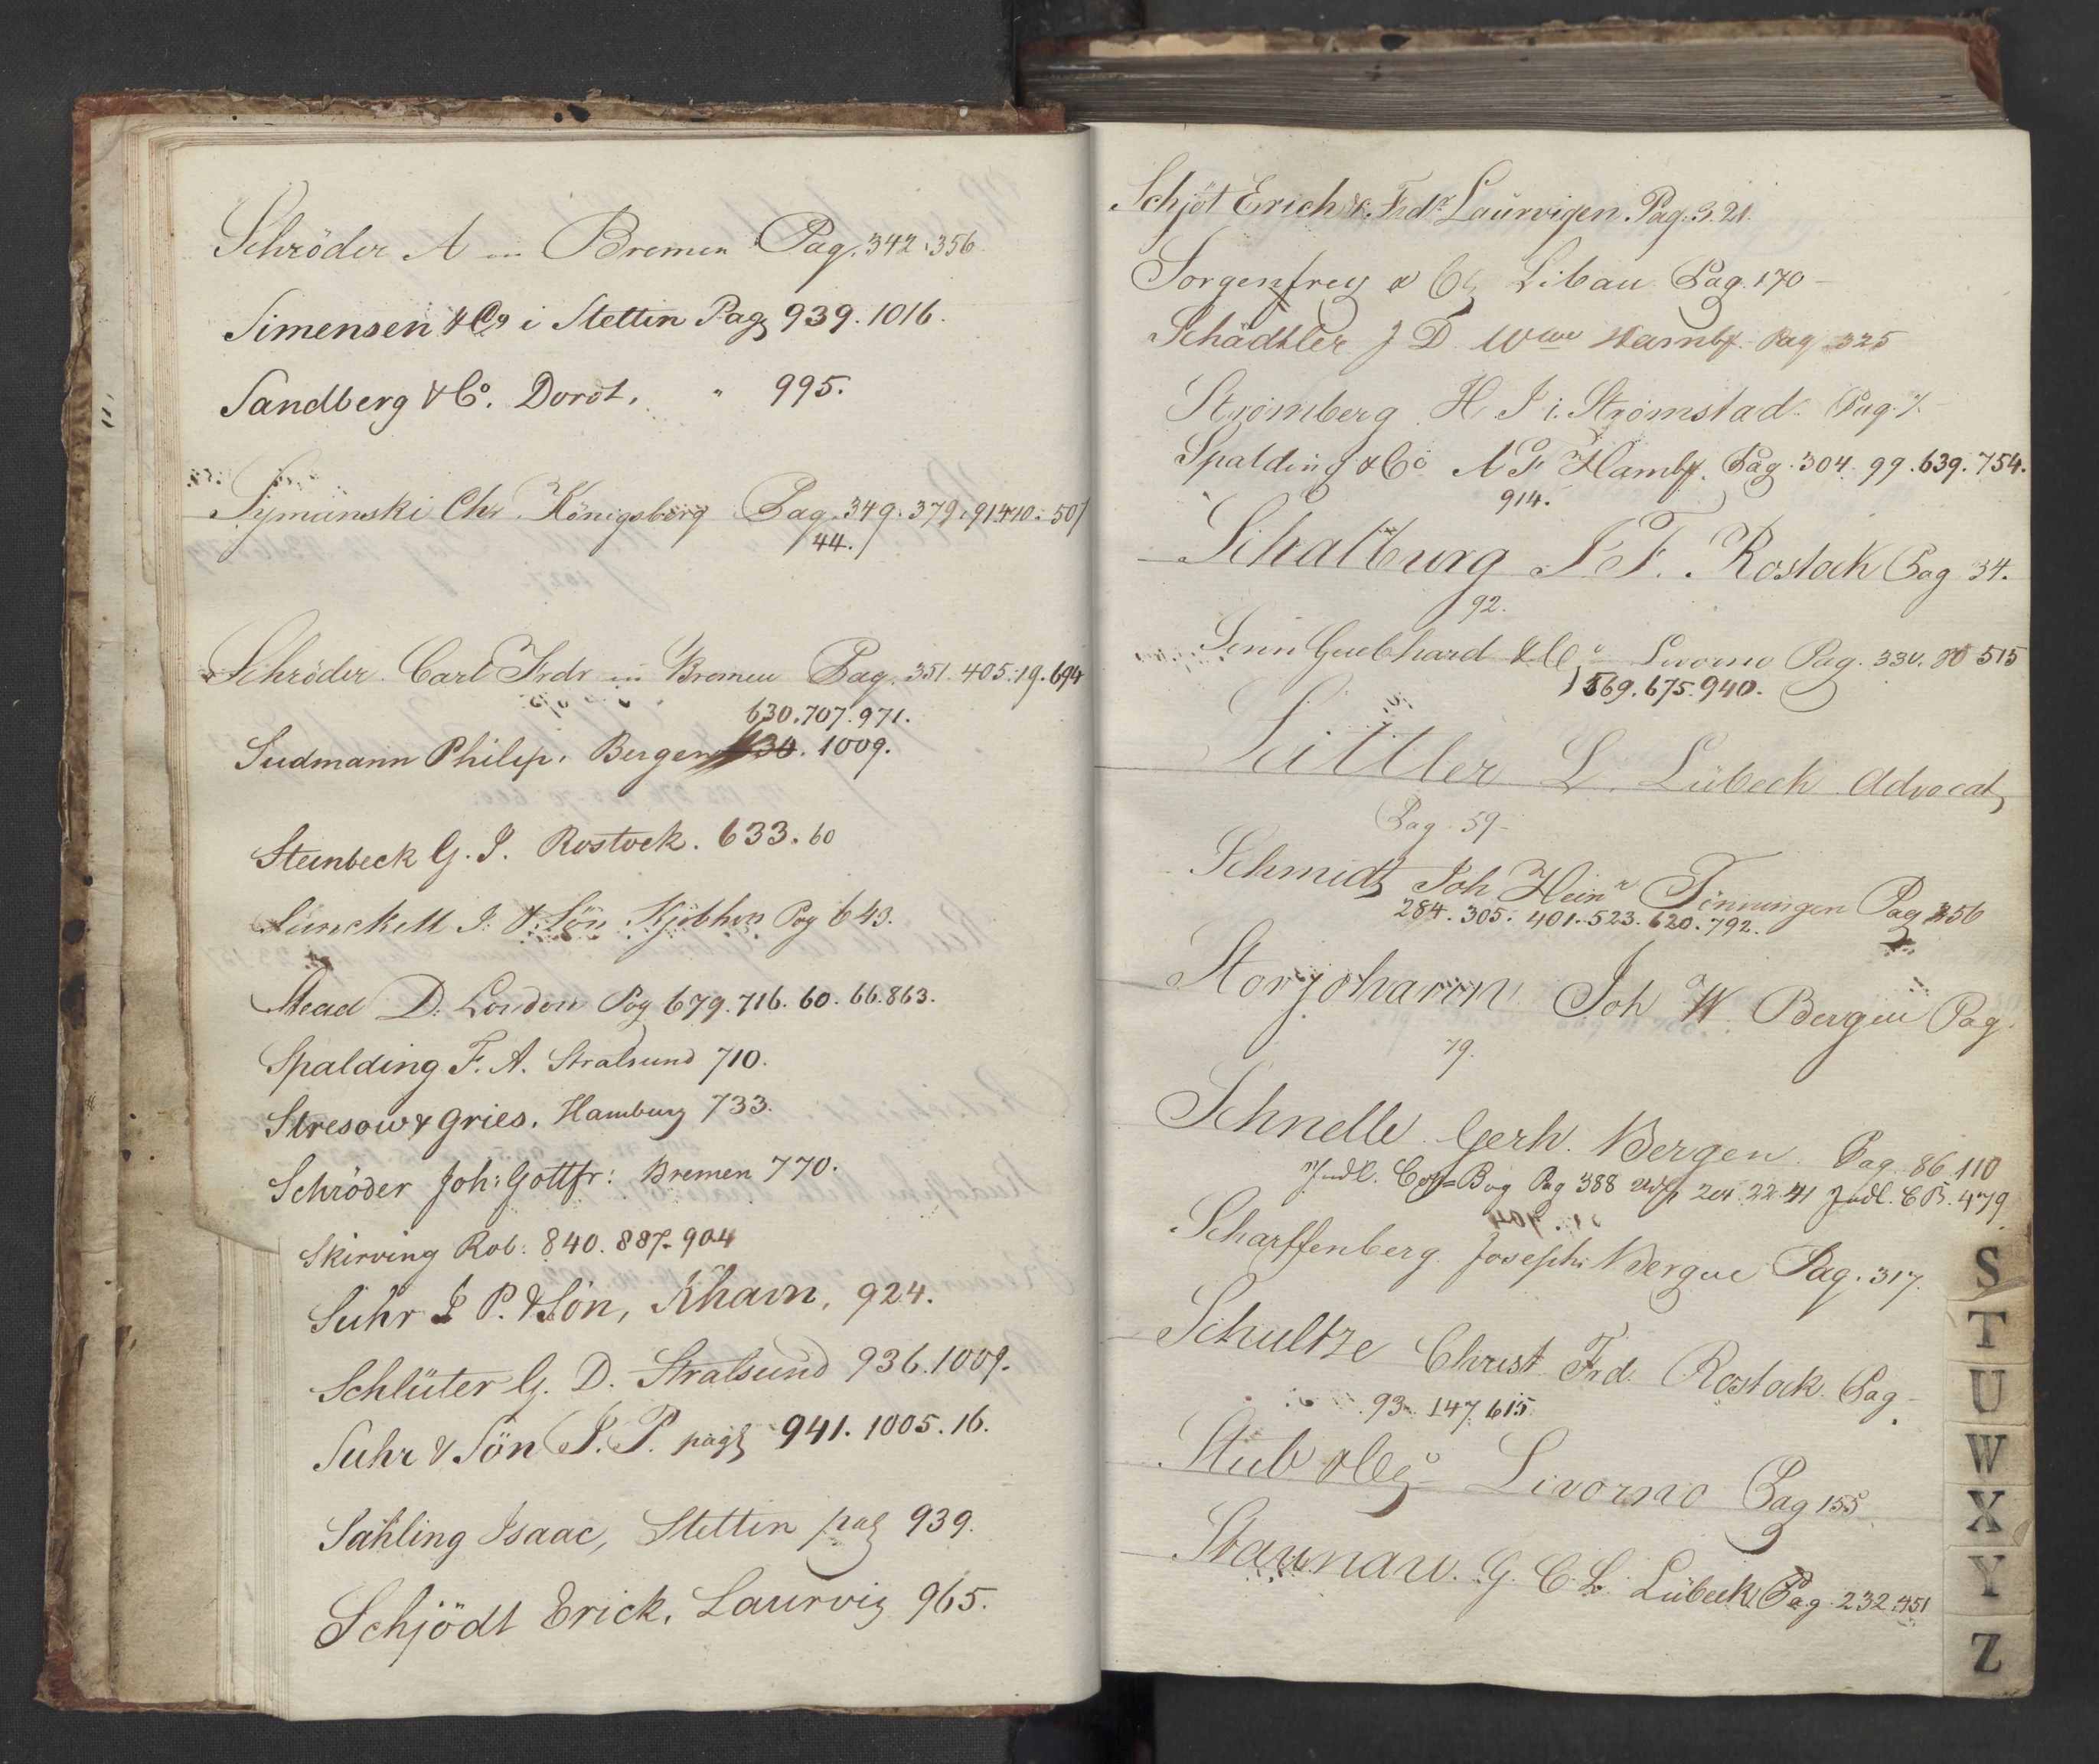 Schröder A in Bremen Pag. 342.356
Simensen & Co i Stettin Pag 939.1016.
Sandberg & Co. Doro't. " 995.
Symanski Chr. Königsberg Pag. 349.379.91.410.507
44.
Schröder Carl Frdr in Bremen Pag. 351.405.19.694
630.707.971.
Sudmann Philip. Bergen 1009.
Steinbeck G. J. Rostock. 633.60
Sunckell J. & Sön Kjöbhvn Pag 643.
Stead D. London Pag 679.716.60.66.863.
Spalding F. A. Stralsund 710.
Stresow & Gries. Hamburg 733.
Schröder Joh: Gottfr: Bremen 770.
Skirving Rob: 840.887.904
Suhr J P. & Sön, Khavn, 924.
Schlüter G. D. Stralsund 936.1009.
Suhr & Sön J. P. pag 941.1005.16.
Sahling Isaac, Stettin pag 939.
Schjödt Erick. Laurvig 965.
Schjöt Erich Frdr Laurvigen. Pag. 3.21.
Sorgenfrey & Co Libau Pag. 170
Schädtler J D Wwe Hambg Pag 325
Strömberg H J i Strömstad Pag 7.
Spalding & Co A F Hambg. Pag. 304.99.639.754.
914.
Schalburg J F. Rostock Pag 34.
92.
Senn Guebhard & Co Livorno Pag. 330.80 515
569.675.940.
Sittler L. Lübeck Advocat
Pag 59
Schmidt Joh Heinr Tönningen Pag 256
284.305.401.523.620.792.
Storjohann Joh W Bergen Pag.
79.
Schnelle Gerh. Bergen. Pag. 86 110
Indl. Cop=Bog Pag 388 204.22.41 Indl. C B. 479
Scharffenberg Joseph: Bergue Pag. 317.
Schultze Christ Frd. Rostock Pag
93. 147.615.
Stub & Co Livorno Pag 155
Staunau. G. C. L. Lübeck Pag. 232.451
S
T
U
W
X
Y
Z